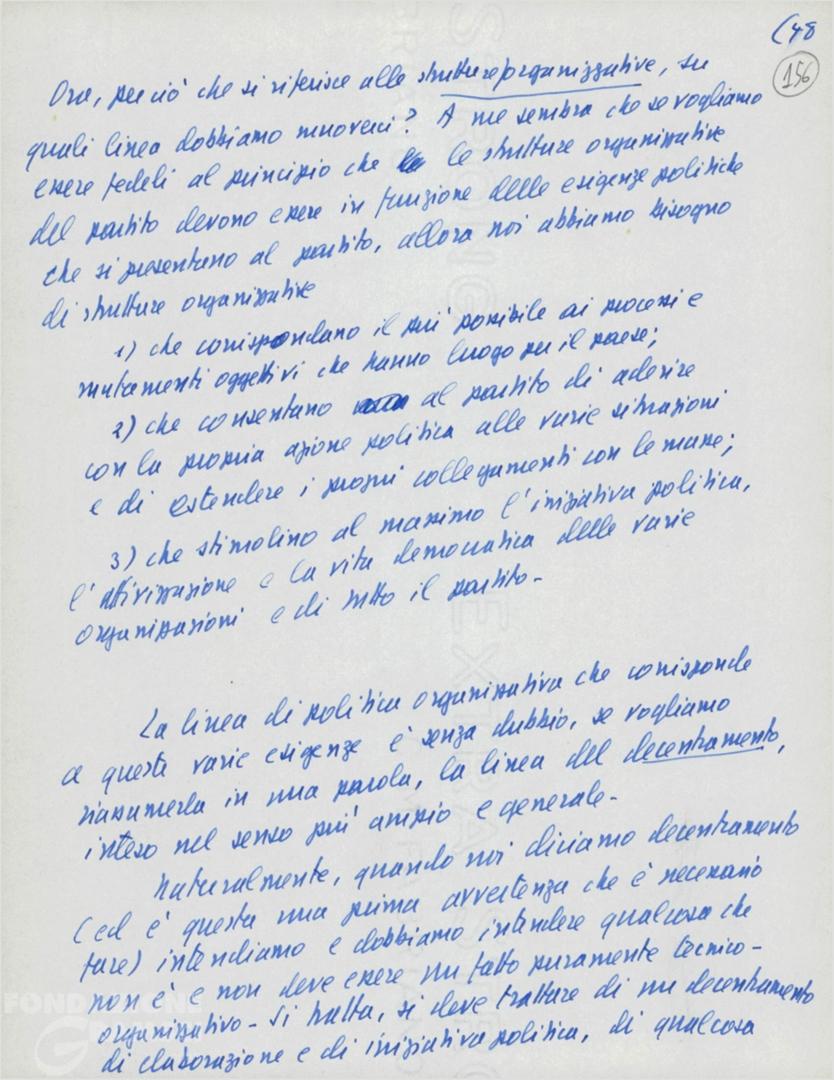 (48
156
Ora, per ciò che si riferisce alle strutture organizzative, su
quali linea dobbiamo muoverci? A me sembra che se vogliamo
essere fedeli al principio che le strutture organizzative
del partito devono essere in funzione delle esigenze politiche
che si presentano al partito, allora noi abbiamo bisogno
di strutture organizzative
1) che corrispondano il più possibile ai processi e
mutamenti oggettivi che hanno luogo per il paese;
2) che consentano al partito di aderire
con la propria azione politica alle varie situazioni
e di estendere i propri collegamenti con le masse;
3) che stimolino al massimo l'iniziativa politica,
l'attivizzazione e la vita democratica delle varie
organizzazioni e di tutto il partito-
La linea di politica organizzativa che corrisponde
a queste varie esigenze è senza dubbio, se vogliamo
riassumerla in una parola, la linea del decentramento,
inteso nel senso più ampio e generale-
Naturalmente, quando noi diciamo decentramento
(ed è questa una prima avvertenza che è necessario
fare) intendiamo e dobbiamo intendere qualcosa che
non è e non deve essere un fatto puramente tecnico-
organizzativo- Si tratta, si deve trattare di un decentramento
di elaborazione e di iniziativa politica, di qualcosa
FONDAZIONE